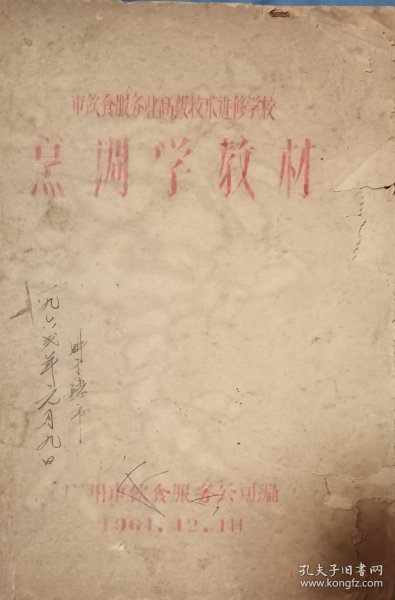 市饮食服务业高级技术进修学校
烹调学教材
一九六弍年元月九日
于穗市
广州市饮食服务公司编
1961.12.1日
孔夫子旧书网
www.kongfz.com